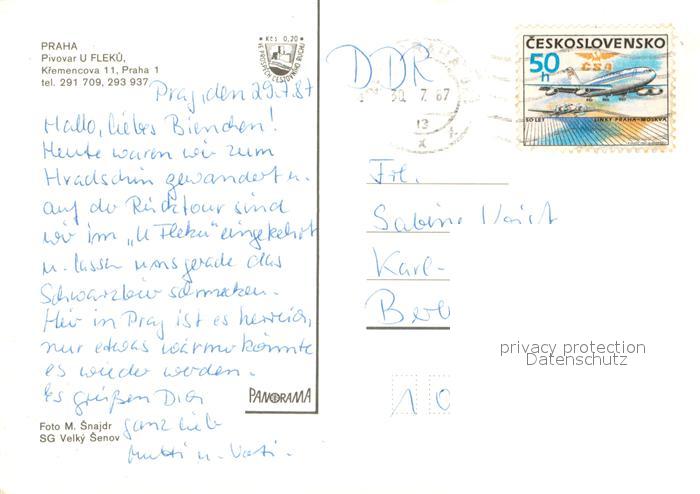 PRAHA
Pivovar U FLEKŮ,
Křemencova 11, Praha 1
tel. 291 709, 293 937
Kčs 0,20
VE PROSPĚCH CESTOVNÍHO RUCHU
Prag, den 29.7.87
Hallo, liebes Bienchen!
Heute waren wir zum
Hradschin gewandert u.
auf der Rücktour sind
wir im „U Fleků" eingekehrt
u. lassen uns gerade das
Schwarzbier schmecken.
Hier in Prag ist es herrlich,
nur etwas wärmer könnte
es wieder werden.
Es grüßen Dich
ganz lieb
Mutti u. Vati.
PANORAMA
Foto M. Šnajdr
SG Velký Šenov
DDR
30. 7. 87
13
x
ČESKOSLOVENSKO
50 h
ČSA
50 LET LINKY PRAHA-MOSKVA
Frl.
Sabine
Karl-
Ber
10
privacy protection
Datenschutz